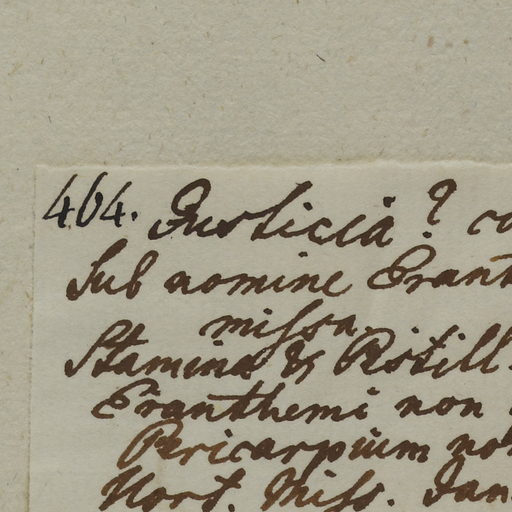 464. Justicia? co
Sub nomine Eranth
missa.
Stamina & Pistill.
Eranthemi non
Pericarpium no
Hort. Miss. Jan